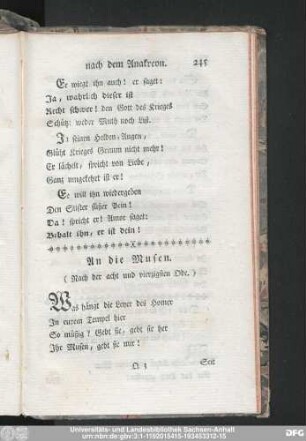 nach dem Anakreon. 245
Er wiegt ihn auch! er saget:
Ja, wahrlich dieser ist
Recht schwer! den Gott des Krieges
Schützt weder Muth noch List.
In seinen Helden-Augen,
Glüht Krieges Grimm nicht mehr!
Er lächelt, spricht von Liebe,
Ganz umgekehrt ist er!
Er will ihn wiedergeben
Den Stifter süßer Pein!
Da! spricht er! Amor saget:
Behalt ihn, er ist dein!
An die Musen.
(Nach der acht und vierzigsten Ode.)
Was hängt die Leyer des Homer
In eurem Tempel hier
So müßig? Gebt sie, gebt sie her
Ihr Musen, gebt sie mir!
Q 3 Seit
Universitäts- und Landesbibliothek Sachsen-Anhalt
urn:nbn:de:gbv:3:1-1192015415-193453312-15
DFG